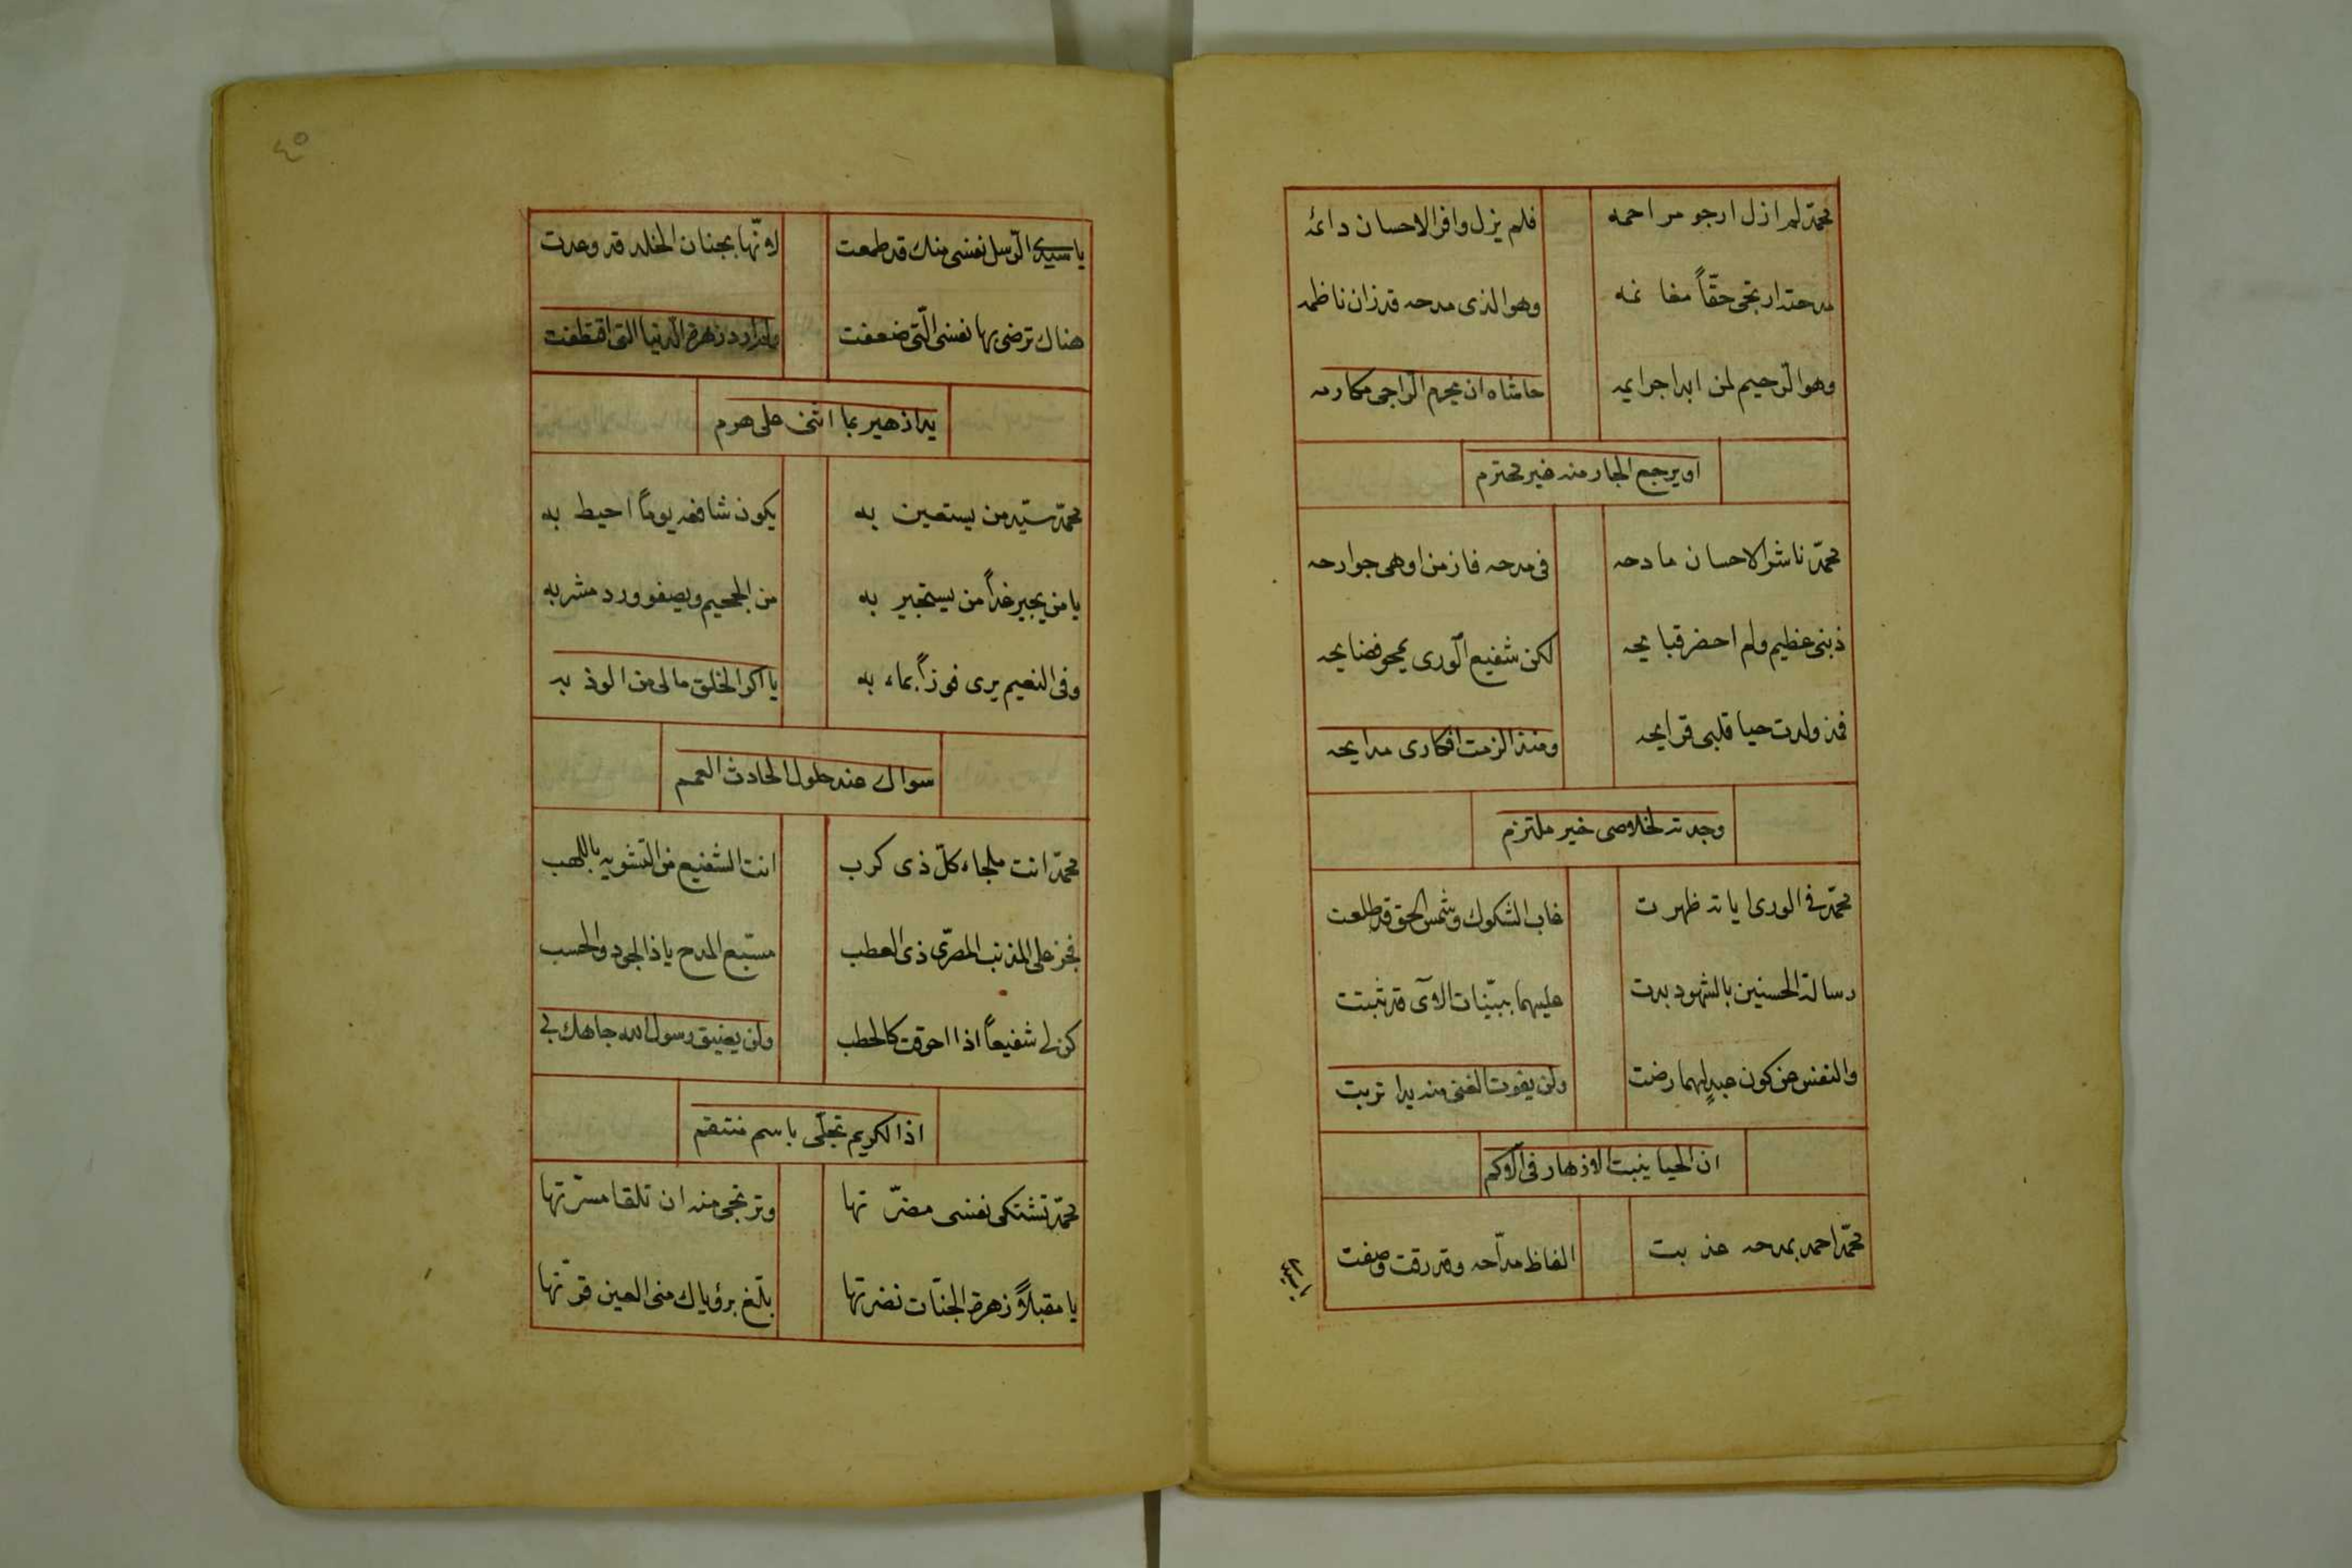 محمّد لم ازل ارجو مراحمه فلم يزل وافر الاحسان دائمه
مدحته ارتجى حقّاً مغا نمه وهو الذى مدحه قد زان ناظمه
وهو الرّحيم لمن ابدا جرايمه حاشاه ان يحرم الرّاجى مكارمه
او يرجع الجار منه غير محترم
محمّد ناشر الاحسان مادحه فى مدحه فاز من اوهى جوارحه
ذبنى عظيم ولم احضر قبايحه لكن شفيع الورى يمحو فضايحه
فمذ ولدت حيا قلبى قرايحه ومنذ الزمت افكارى مدايحه
وجدته لخلاصى خير ملتزم
محمّد فى الورى اياته ظهرت غاب الشكوك وشمس الحق قد طلعت
رسالة الحسنين بالشهود بدت عليهما ببيّنات الاۤى قد ثبتت
والنفس عن كون عبدٍ لهما رضت ولن يفوت الغنى منه يدا تربت
ان الحيا ينبت الازهار فى الاكم
محمّد احمد بمدحه عذبت الفاظ مدّاحه وقد رقت وصفت
ياسيدى
٤٥
يا سيدى الرّسل نفسى منك قد طمعت لانّها بجنان الخلد قد وعدت
هناك ترضى بها نفسى الّتى ضعفت ولم ارد زهرة الدّنيا التى اقتطفت
يدا زهير بما اثنى على هرم
محمّد سيّد من يستعين به يكون شافعه يوماً احيط به
يا من يجير غداً من يستجير به من الجحيم ويصفو ورد مشربه
وفى النعيم يرى فوزاً بماء به يا اكرم الخلق مالى من الوذ به
سواك عند حلول الحادث العمم
محمّد انت ملجاء كلّ ذى كرب انت الشفيع من التشويه باللهب
فجز على المذنب المصرّى ذى العطب مستبع المدح يا ذا الجود والحسب
كن لى شفيعاً اذا احرقت كالحطب ولن يضيق رسول الله جاهك بى
اذا الكريم تجلّى باسم منتقم
محمّد تشتكى نفسى مضرّ تها وترتجى منه ان تلقا مسرّتها
يا مقبلاً زهرة الجنّات نضرتها بلّغ برؤياك منى العين قرّتها